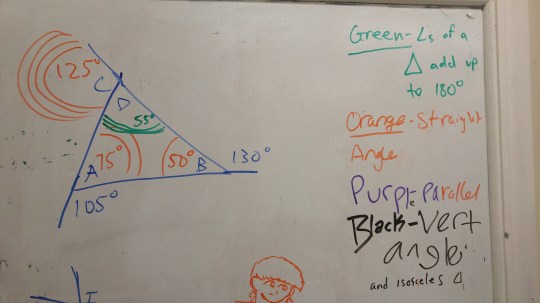 125°
C
D
55°
75°
50°
B
130°
A
105°
Green-∠s of a
△ add up
to 180°
Orange-Straight
Angle
Purple-Parallel
Black-Vert
angle
and isosceles △
I